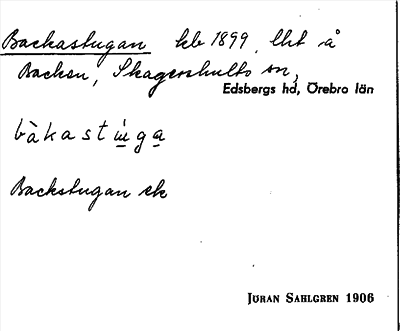 Backastugan kb 1899, lht å
Backen, Skagershults sn,
Edsbergs hd, Örebro län
bàkastúga
Backstugan ek
JÖRAN SAHLGREN 1906